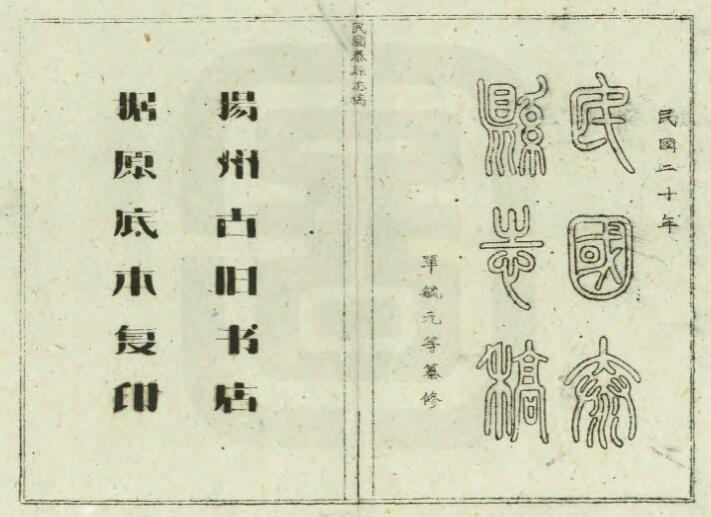 民國二十年
民國泰
縣志稿
單毓元等纂修
民國泰縣志稿
扬州古旧书店
据原底本复印